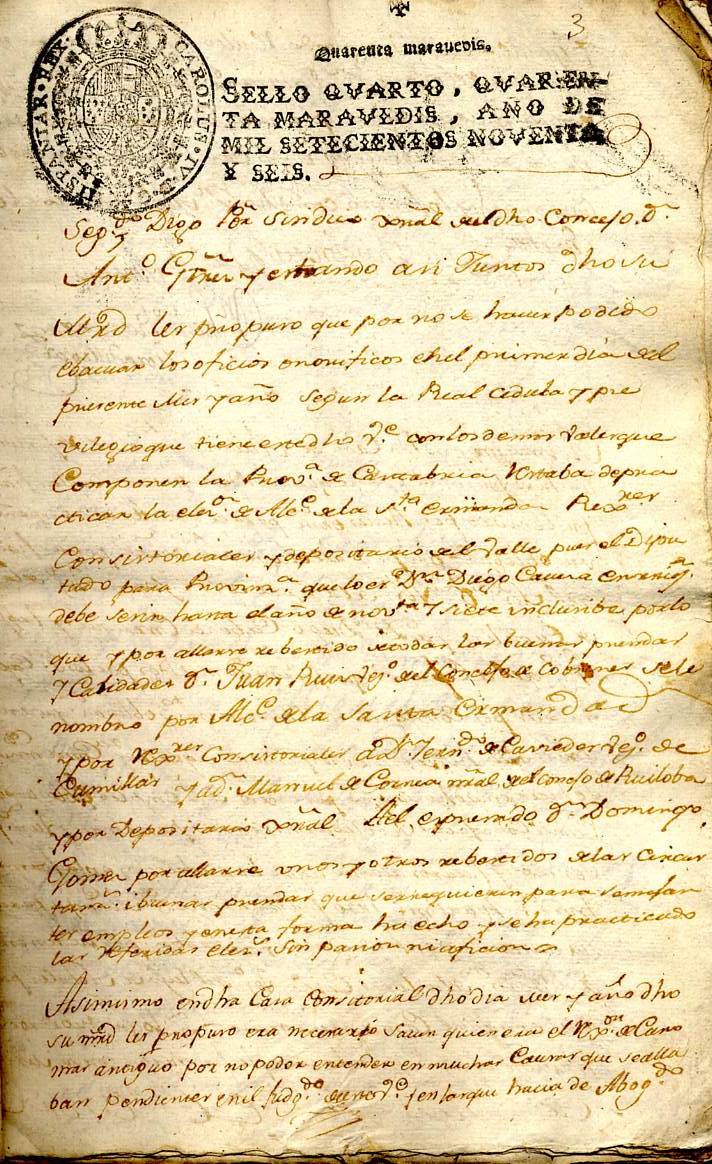 3
Quarenta maravedis.
SELLO QVARTO, QVAREN-
TA MARAVEDIS, AÑO DE
MIL SETECIENTOS NOVENTA
Y SEIS.
CAROLUS IV D G HISPANIAR REX
Seg.do Diego Por Sindico xnãl del dho Conceso D.n
Ant.o Gmez y estando asi Juntos dho su
Mrd les pñopuso que por no se haver podido
ebacuar los oficios onorificos en el primer dia del
presente Mes y año segun la Real cedula y pre
vilegio que tiene este dho V.e con los demas Valles que
Componen la Prov.a de Cantabria restaba de pra
cticar la elez.on de Alc.e de la S.ta Ermanda Rex.res
Consistoriales y depositario del Valle pues el Dipu
tado para Provinz.a que lo es D.n Diego Cavia
debe serin hasta el año de nov.ta y siete inclusibe por lo
que y por allarse rebertido de todas las buenas prendas
y Calidades D.n Juan Ruiz vez.o del Conceso de Cobreces se le
nombro por Alc.e de la Santa Ermandad
y por Rex.res Consistoriales a D.n Fern.do de Caviedes vez.o de
Cumillas y a D.n Manuel de Correa nrãl del conceso de Ruiloba
y por Depositario xnãl del expresado D.n Domingo
Gomez por allarse unos y otros rebertidos de las circus
tanz.s i buenas prendas que se rrequieren para semejan
tes empleos y en esta forma ha echo y se ha practicado
las referidas elez.s sin pasion ni aficion
Asimismo en dha Casa Consistorial dho dia Mes y año dho
su mrd les propuso era necesario saver quien era el Rex.or de Cano
mas antiguo por no poder entender en muchas Causas que se alla
ban pendientes en el Judg.do de este V.e y en las que hacia de Abog.do